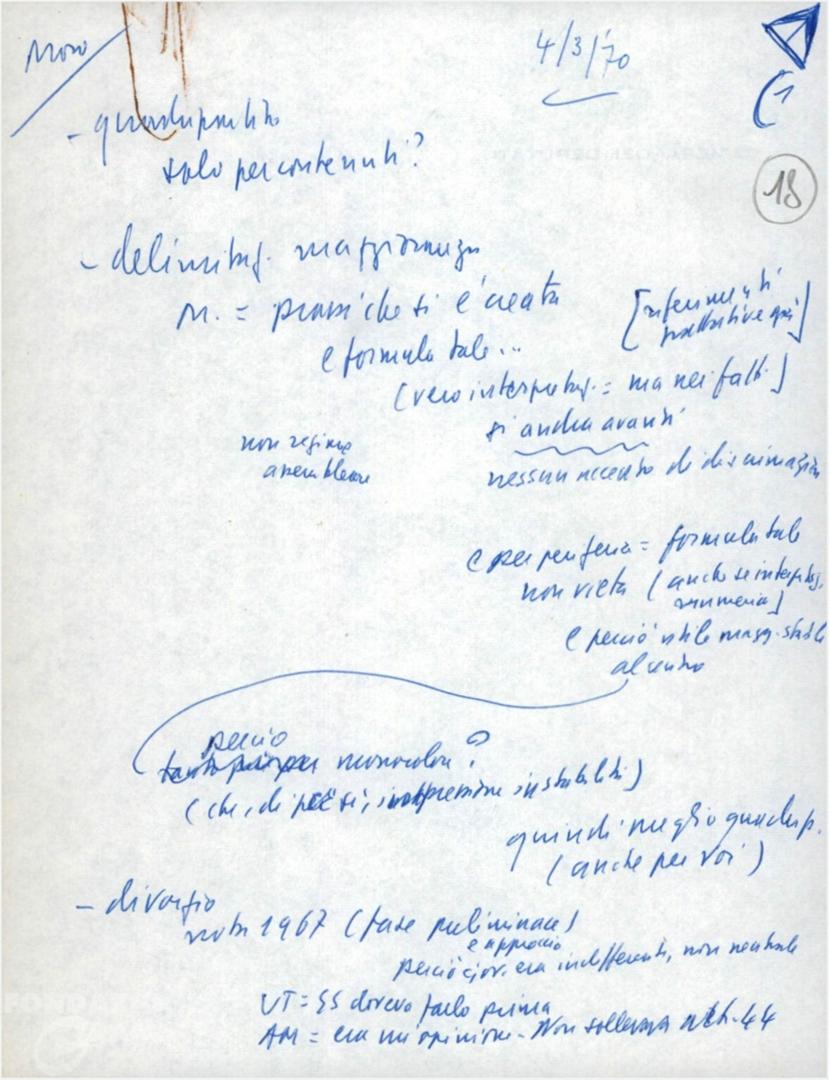 Moro
4/3/'70
(1
18
- quadripartito
solo per contenuti?
- delimitaz. maggioranza
M. = prassi che si è creata
[riferimenti
prospettive qui]
e formula tale...
(vero interpretaz. = ma nei fatti)
si andrà avanti
non regime
assembleare
nessun accento di discriminazione
e per periferia = formula tale
non vieta (anche se interpretaz.
e perciò utile magg. stabile
al centro
perciò
monocolore?
(che, di per sé, instabilità)
quindi meglio quadrip.
(anche per voi)
- divorzio
nota 1967 (fase preliminare)
e approccio
perciò gov. era indifferente, non neutrale
VT = SS doveva farlo prima
AM = era mia opinione - Non sollevava 44